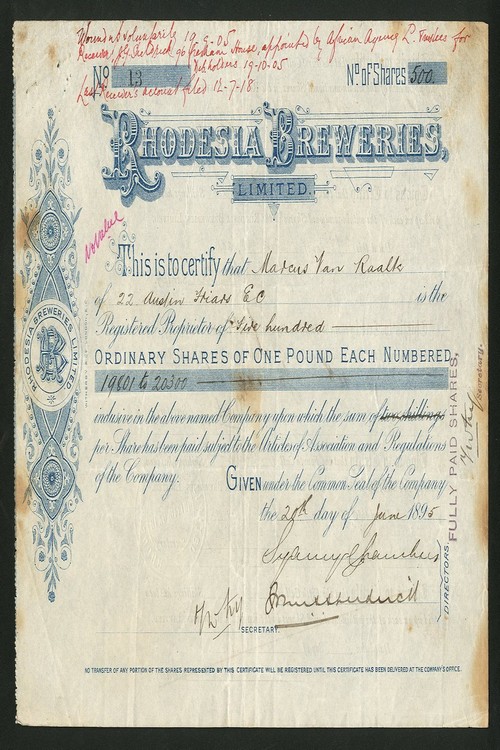 Wound up voluntarily 19-5-05
Receiver, 96 Gresham House, appointed by African Agency Ld. Trustees for
Debholders 19-10-05
Last Receiver's account filed 12-7-18
No 13
No. of Shares 500.
RHODESIA BREWERIES,
LIMITED.
No value
This is to certify that Marcus Van Raalte
of 22 Austin Friars EC is the
Registered Proprietor of Five hundred
ORDINARY SHARES OF ONE POUND EACH NUMBERED
19801 to 20300
inclusive in the above named Company upon which the sum of two shillings
per Share has been paid subject to the Articles of Association and Regulations
of the Company. GIVEN under the Common Seal of the Company
the 20th day of June 1895
DIRECTORS
SECRETARY.
FULLY PAID SHARES,
Secretary.
RHODESIA BREWERIES LIMITED
RB
NO TRANSFER OF ANY PORTION OF THE SHARES REPRESENTED BY THIS CERTIFICATE WILL BE REGISTERED UNTIL THIS CERTIFICATE HAS BEEN DELIVERED AT THE COMPANY'S OFFICE.